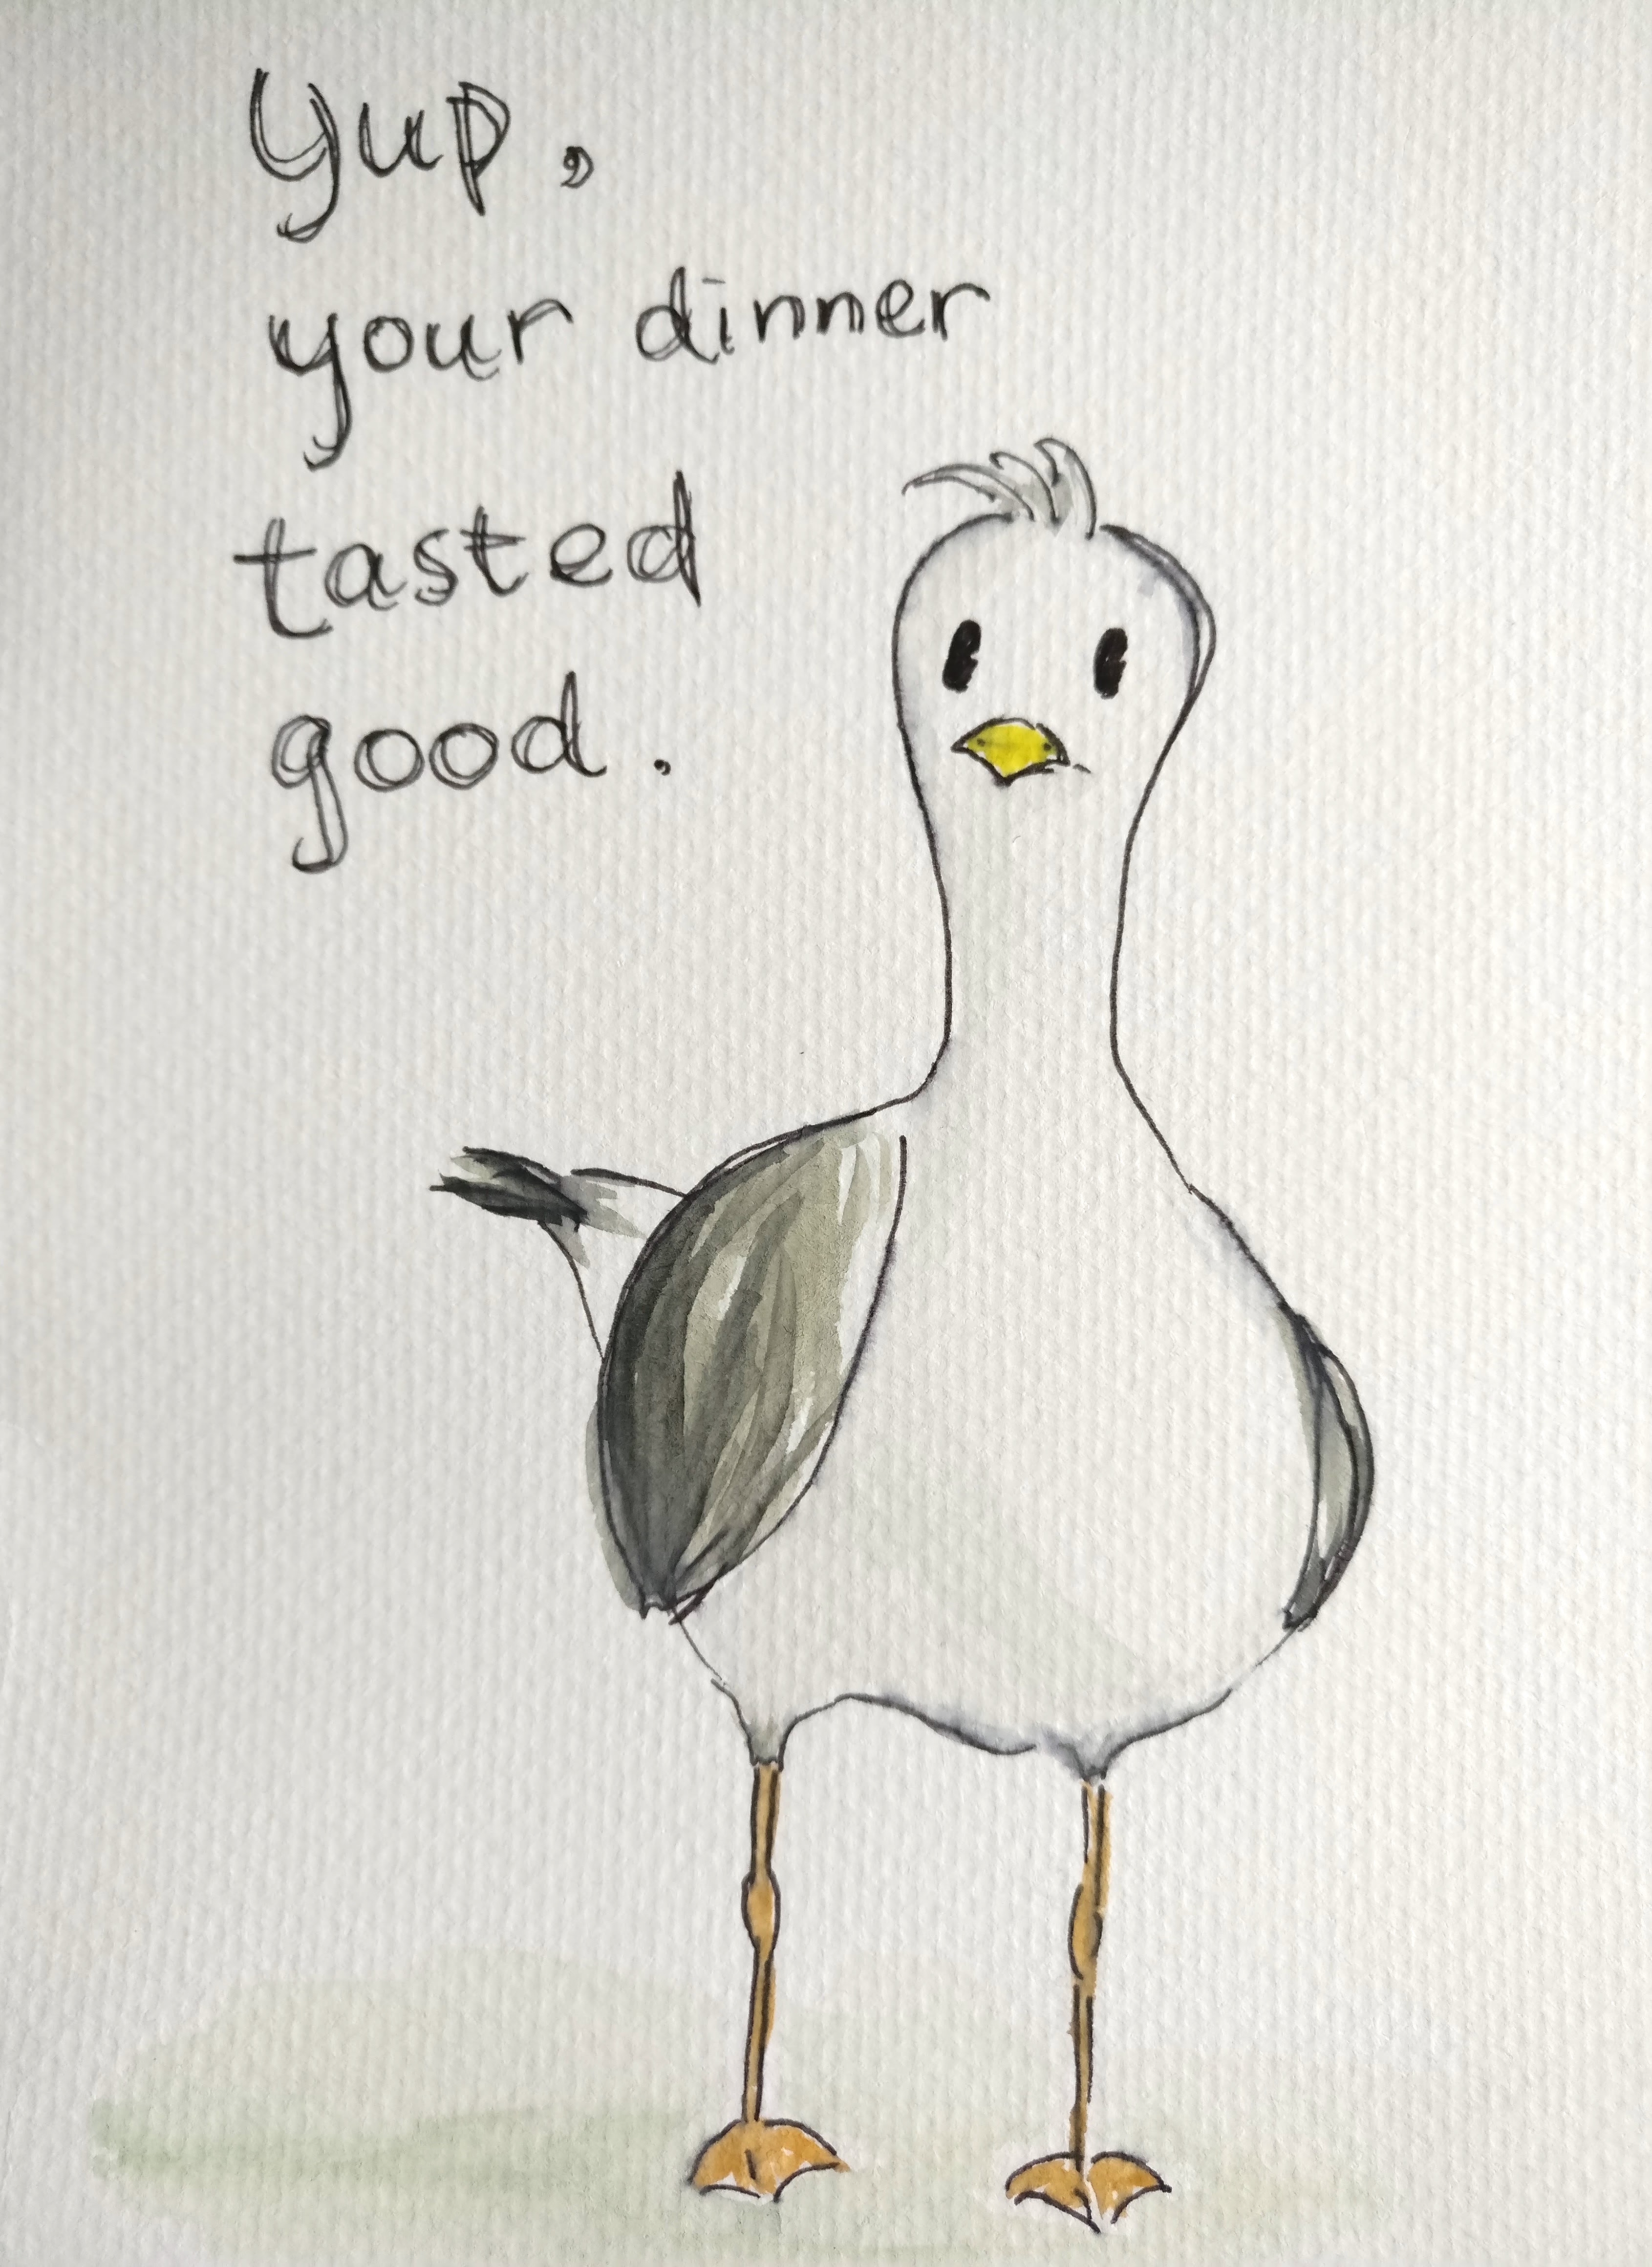 Yup,
your dinner
tasted
good.